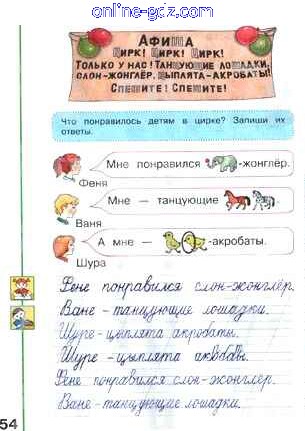 online-gdz.com
АФИША
ЦИРК! ЦИРК! ЦИРК!
ТОЛЬКО У НАС! ТАНЦУЮЩИЕ ЛОШАДКИ,
СЛОН-ЖОНГЛЁР, ЦЫПЛЯТА-АКРОБАТЫ!
СПЕШИТЕ! СПЕШИТЕ!
Что понравилось детям в цирке? Запиши их
ответы.
Мне понравился -жонглёр.
Феня
Мне — танцующие .
Ваня
А мне — -акробаты.
Шура
Фене понравился слон-жонглёр.
Ване - танцующие лошадки.
Шуре - цыплята акробаты.
Шуре - цыплята
Фене понравился слон-жонглёр.
Ване - танцующие лошадки.
54